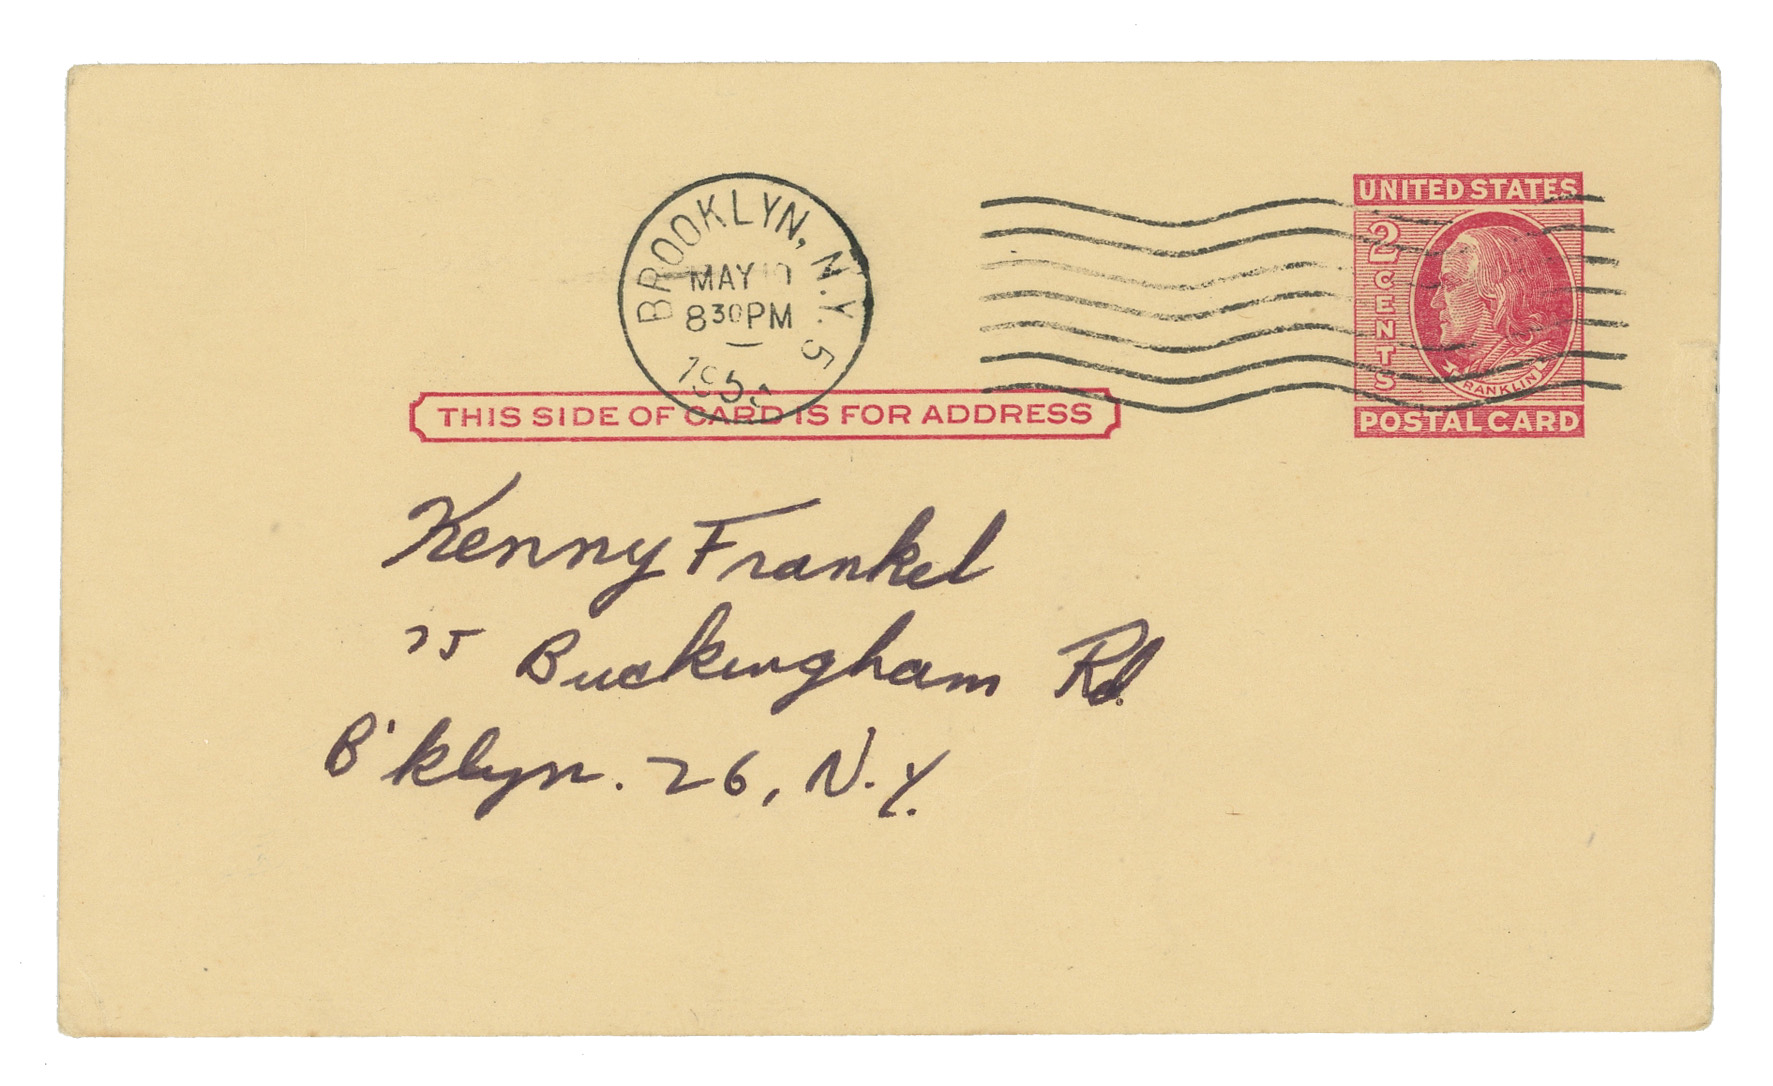 BROOKLYN, N.Y. 5
MAY
8 30 PM
UNITED STATES
2 CENTS
FRANKLIN
POSTAL CARD
THIS SIDE OF CARD IS FOR ADDRESS
Kenny Frankel
75 Buckingham Rd.
B'klyn. 26, N.Y.